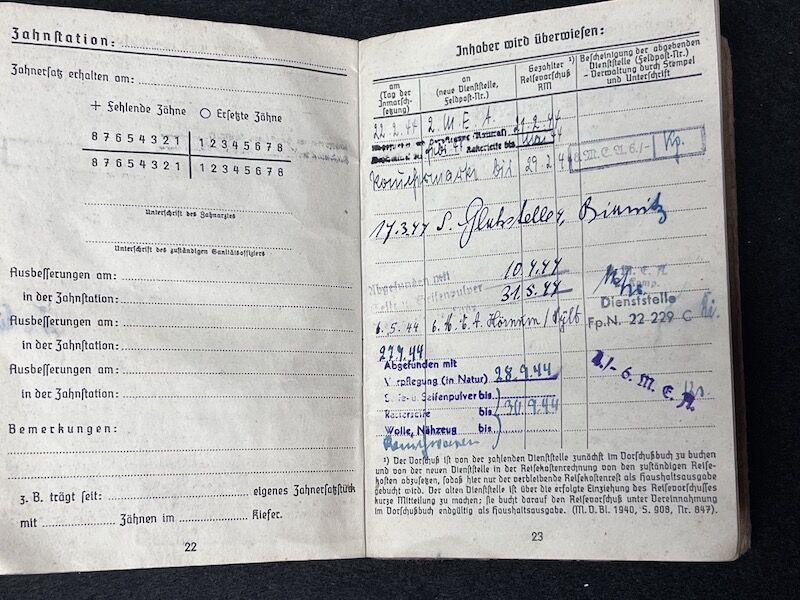 Zahnstation:
Zahnersatz erhalten am:
+ Fehlende Zähne ○ Ersetzte Zähne
8 7 6 5 4 3 2 1 | 1 2 3 4 5 6 7 8
8 7 6 5 4 3 2 1 | 1 2 3 4 5 6 7 8
Unterschrift des Zahnarztes
Unterschrift des zuständigen Sanitätsoffiziers
Ausbesserungen am:
in der Zahnstation:
Ausbesserungen am:
in der Zahnstation:
Ausbesserungen am:
in der Zahnstation:
Bemerkungen:
z. B. trägt seit: eigenes Zahnersatzstück
mit Zähnen im Kiefer.
22
Inhaber wird überwiesen:
am (Tag der Inmarschsetzung)
an (neue Dienststelle, Feldpost-Nr.)
Gezahlter Reisevorschuß ¹) RM
Bescheinigung der abgebenden Dienststelle (Feldpost-Nr.) - Verwaltung durch Stempel und Unterschrift
22.2.44 2. M. E. A. 21.2.44
Rasierseife bis
bis 29.2.44 M. E. A. 6./-
17.3.44 S.
Abgefunden mit 10.4.44
Seifenpulver 31.5.44
Dienststelle
6.5.44 6. M. E. A. Hörnum / Sylt Fp.N. 22 229 C
27.9.44
Abgefunden mit
Verpflegung (in Natur) 28.9.44
1./- 6. M. E. A.
Seife- u. Seifenpulver bis
Rasierseife bis 30.9.44
Wolle, Nähzeug bis
¹) Der Vorschuß ist von der zahlenden Dienststelle zunächst im Vorschußbuch zu buchen
und von der neuen Dienststelle in der Reisekostenrechnung von den zuständigen Reise-
kosten abzusetzen, sodaß hier nur der verbleibende Reisekostenrest als Haushaltsausgabe
gebucht wird. Der alten Dienststelle ist über die erfolgte Einziehung des Reisevorschusses
kurze Mitteilung zu machen; sie bucht darauf den Reisevorschuß unter Vereinnahmung
im Vorschußbuch endgültig als Haushaltsausgabe. (M. D. Bl. 1940, S. 908, Nr. 847).
23